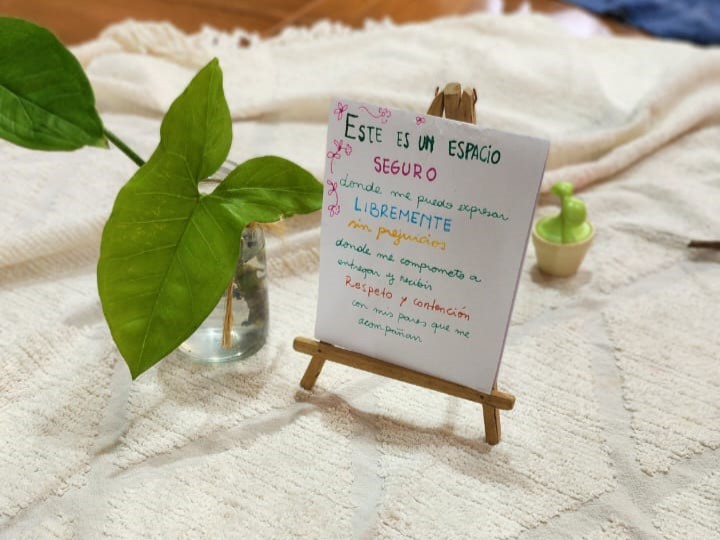 ESTE ES UN ESPACIO
SEGURO
donde me puedo expresar
LIBREMENTE
sin prejuicios
donde me comprometo a
entregar y recibir
Respeto y contención
con mis pares que me
acompañan